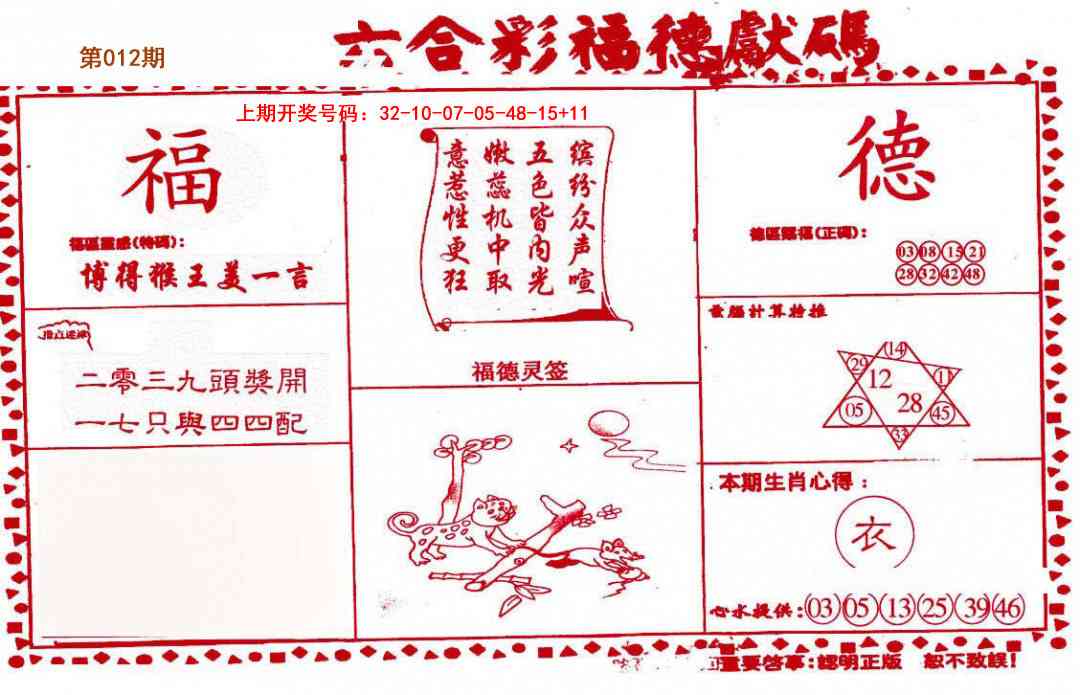 六合彩福德獻碼
第012期
上期开奖号码：32-10-07-05-48-15+11
福
福區靈感(特碼)：
博得猴王美一言
二零三九頭獎開
一七只與四四配
缤纷众声喧
五色皆内光
嫩蕊机中取
意惹性更狂
福德灵签
德
德區賜福(正碼)：
03 08 15 21
28 32 42 48
電腦計算特推
14
29
12
28
05
45
33
本期生肖心得：
衣
心水提供：03 05 13 25 39 46
重要啓事：認明正版 恕不致誤！